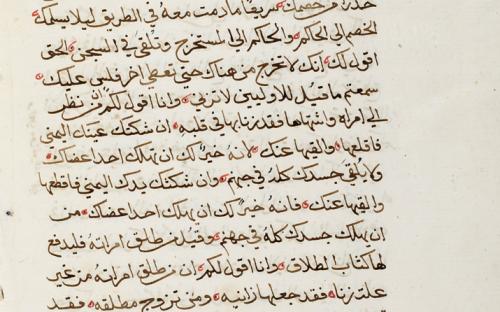 خصمك سريعًا ما دمت معه في الطريق ليلا يسلمك
الخصم الي الحاكم والحاكم الي المستخرج وتلقي في السجن الحق
اقول لك انك لا تخرج من هناك حتي تعطي اخر فلس عليك
سمعتم ما قيل للاوليين لا تزني وانا اقول لكم ان من نظر
الي امراه واشتهاها فقد زنا بها في قلبه ان شككتك عينك اليمني
فاقلعها والقيها عنك لانه خيرًا لك ان يهلك احد اعضاك
ولا يلقي جسدك كله في جهنم وان شككتك يدك اليمني فاقطعها
والقيها عنك فانه خيرًا لك ان يهلك احد اعضاك من
ان يهلك جسدك كله في جهنم وقيل من طلق امراته فليدفع
لها كتاب الطلاق وانا اقول لكم ان من طلق امراته من غير
علت زنا فقد جعلها زانيه ومن تزوج مطلقه فقد